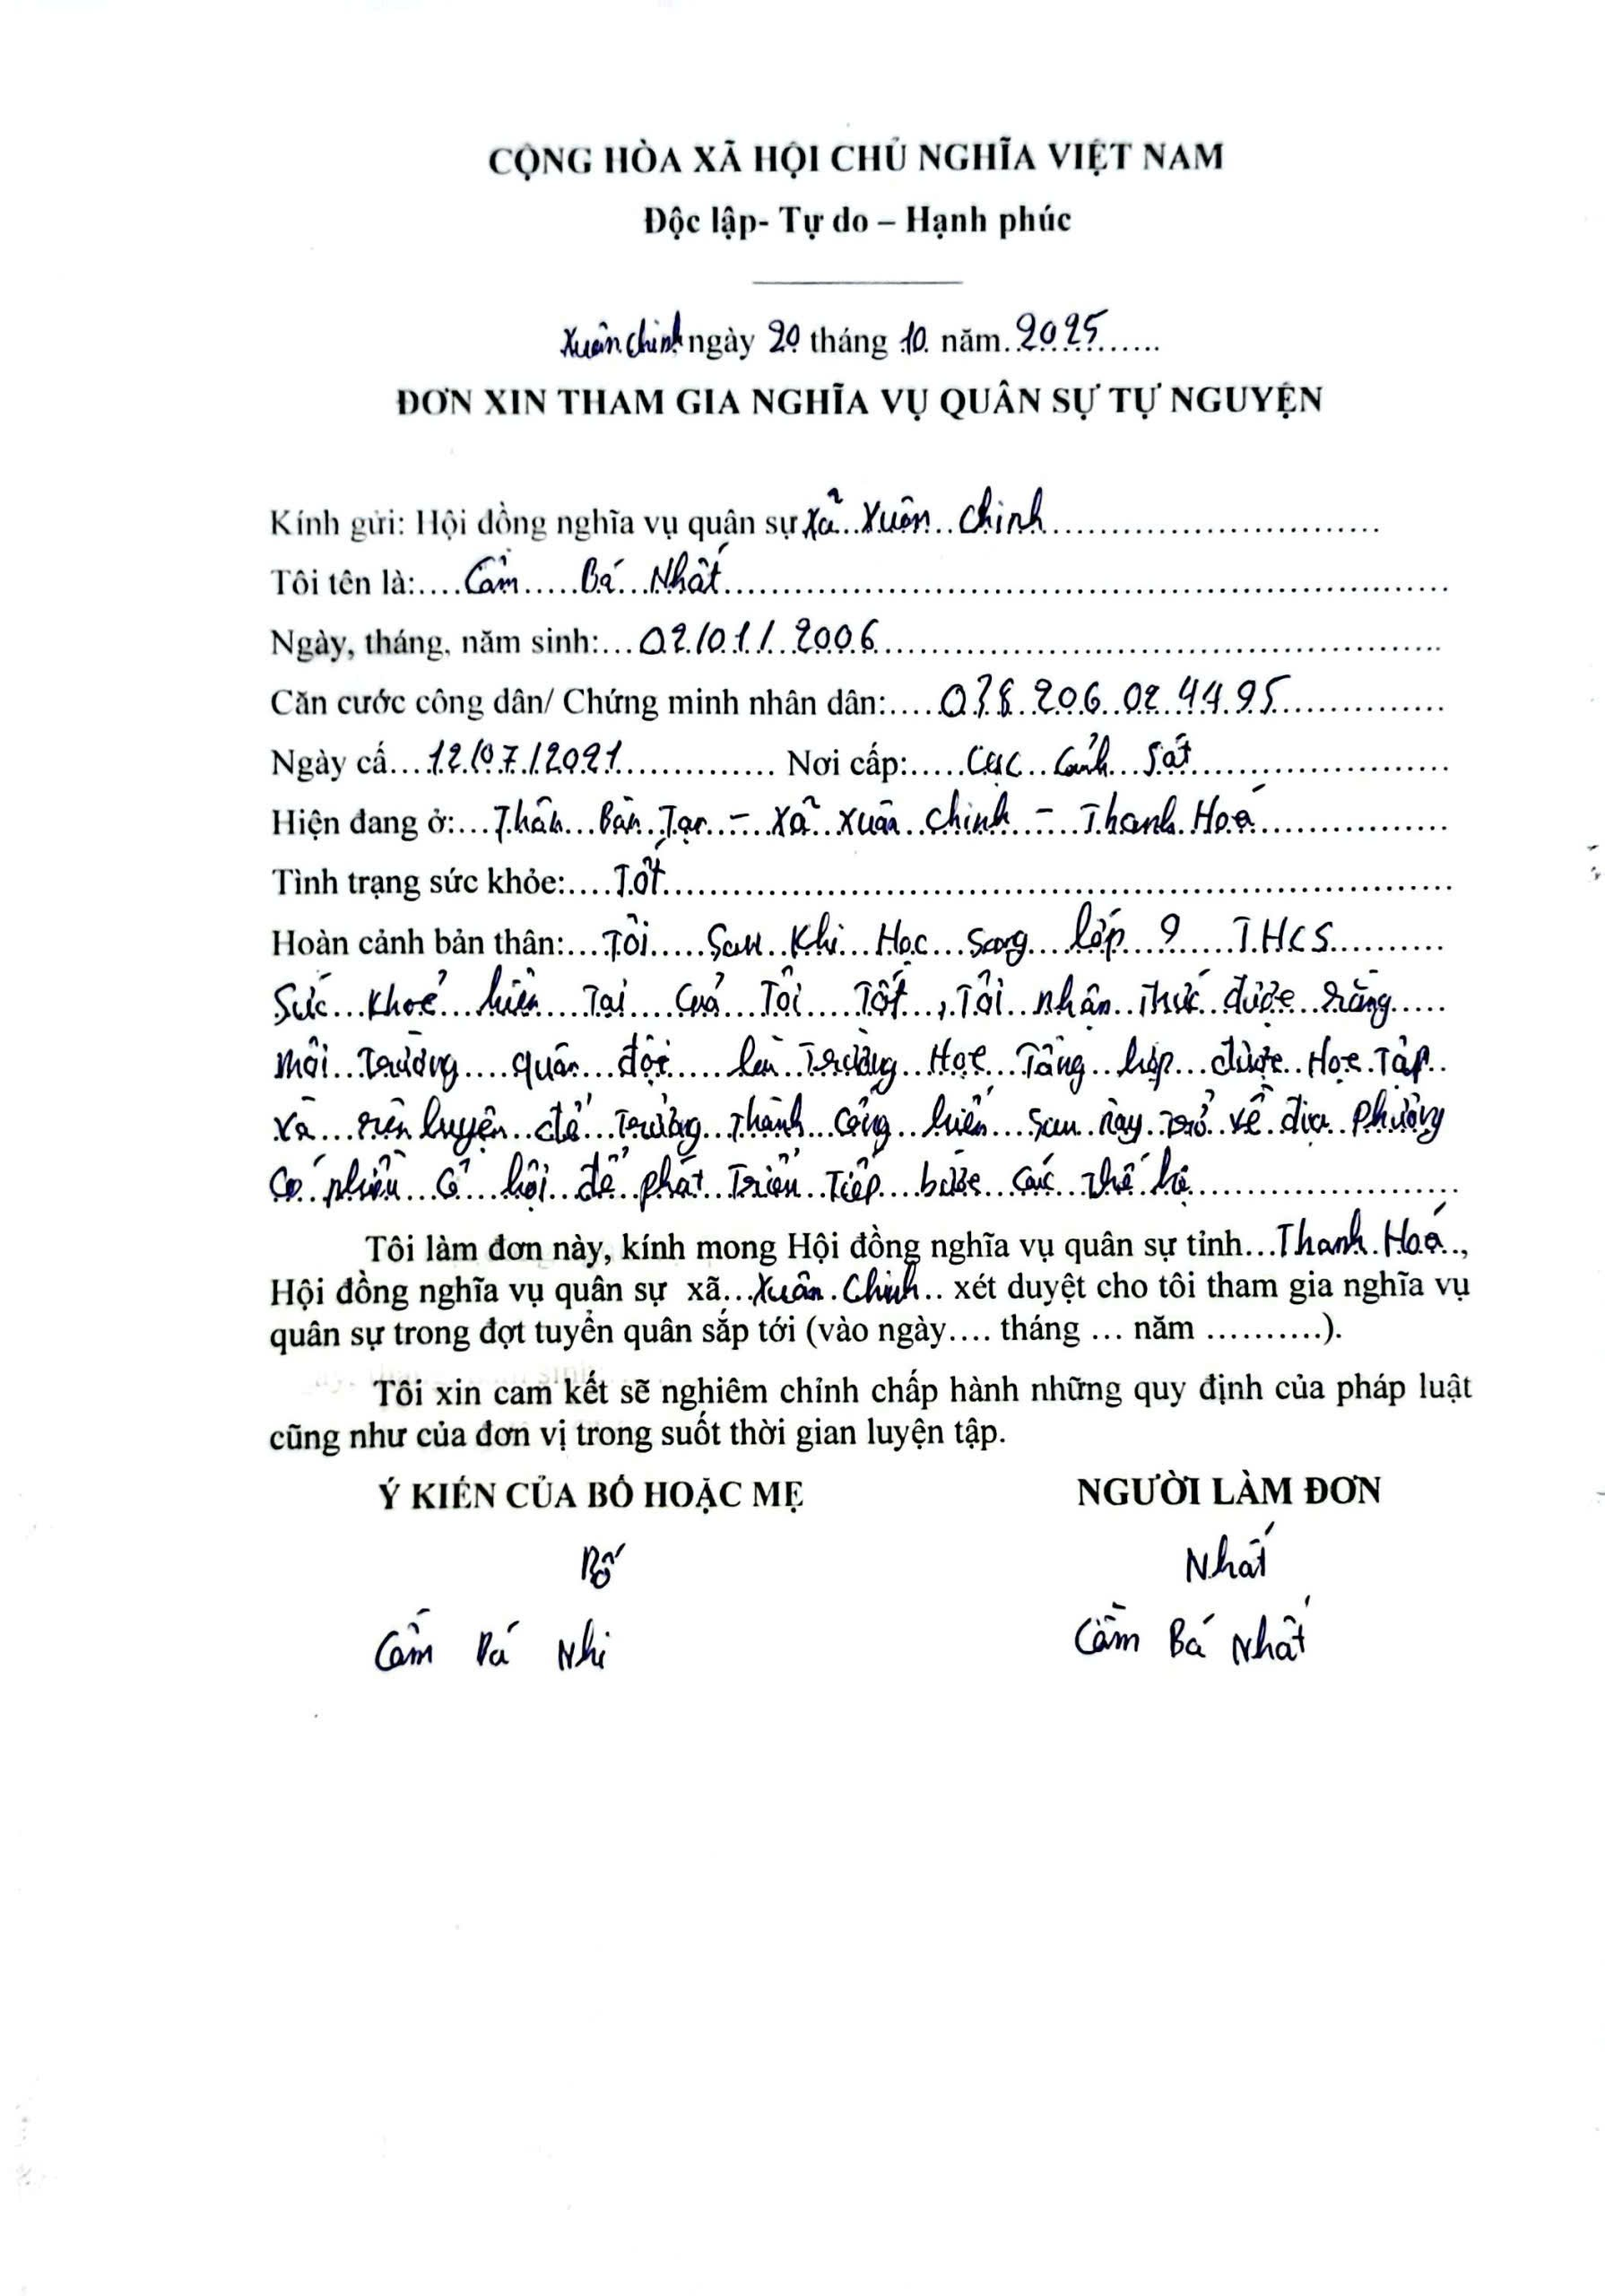 CỘNG HÒA XÃ HỘI CHỦ NGHĨA VIỆT NAM
Độc lập- Tự do – Hạnh phúc
Xuân Chinh ngày 20 tháng 10 năm 2025
ĐƠN XIN THAM GIA NGHĨA VỤ QUÂN SỰ TỰ NGUYỆN
Kính gửi: Hội đồng nghĩa vụ quân sự Xã Xuân Chinh
Tôi tên là: Cầm Bá Nhất
Ngày, tháng, năm sinh: 02/01/2006
Căn cước công dân/ Chứng minh nhân dân: 038 206 02 44 95
Ngày cấ 12/07/2021 Nơi cấp: Cục Cảnh Sát
Hiện đang ở: Thôn Bàn Tạn - Xã Xuân Chinh - Thanh Hoá
Tình trạng sức khỏe: Tốt
Hoàn cảnh bản thân: Tôi Sau Khi Học Song lớp 9 THCS
Sức khoẻ hiện Tại Củả Tôi Tốt, Tôi nhận Thức được rằng
môi Trường quân đội là Trường Học Tổng hợp được Học Tập
và rèn luyện để Trưởng Thành Cống hiến sau này trở về địa phương
Có nhiều Cơ hội để phát Triển Tiếp bước các thế hệ
Tôi làm đơn này, kính mong Hội đồng nghĩa vụ quân sự tỉnh Thanh Hoá,
Hội đồng nghĩa vụ quân sự xã Xuân Chinh xét duyệt cho tôi tham gia nghĩa vụ
quân sự trong đợt tuyển quân sắp tới (vào ngày.... tháng ... năm ..........).
Tôi xin cam kết sẽ nghiêm chỉnh chấp hành những quy định của pháp luật
cũng như của đơn vị trong suốt thời gian luyện tập.
Ý KIẾN CỦA BỐ HOẶC MẸ NGƯỜI LÀM ĐƠN
Bố Nhất
Cầm Bá Nhi Cầm Bá Nhất